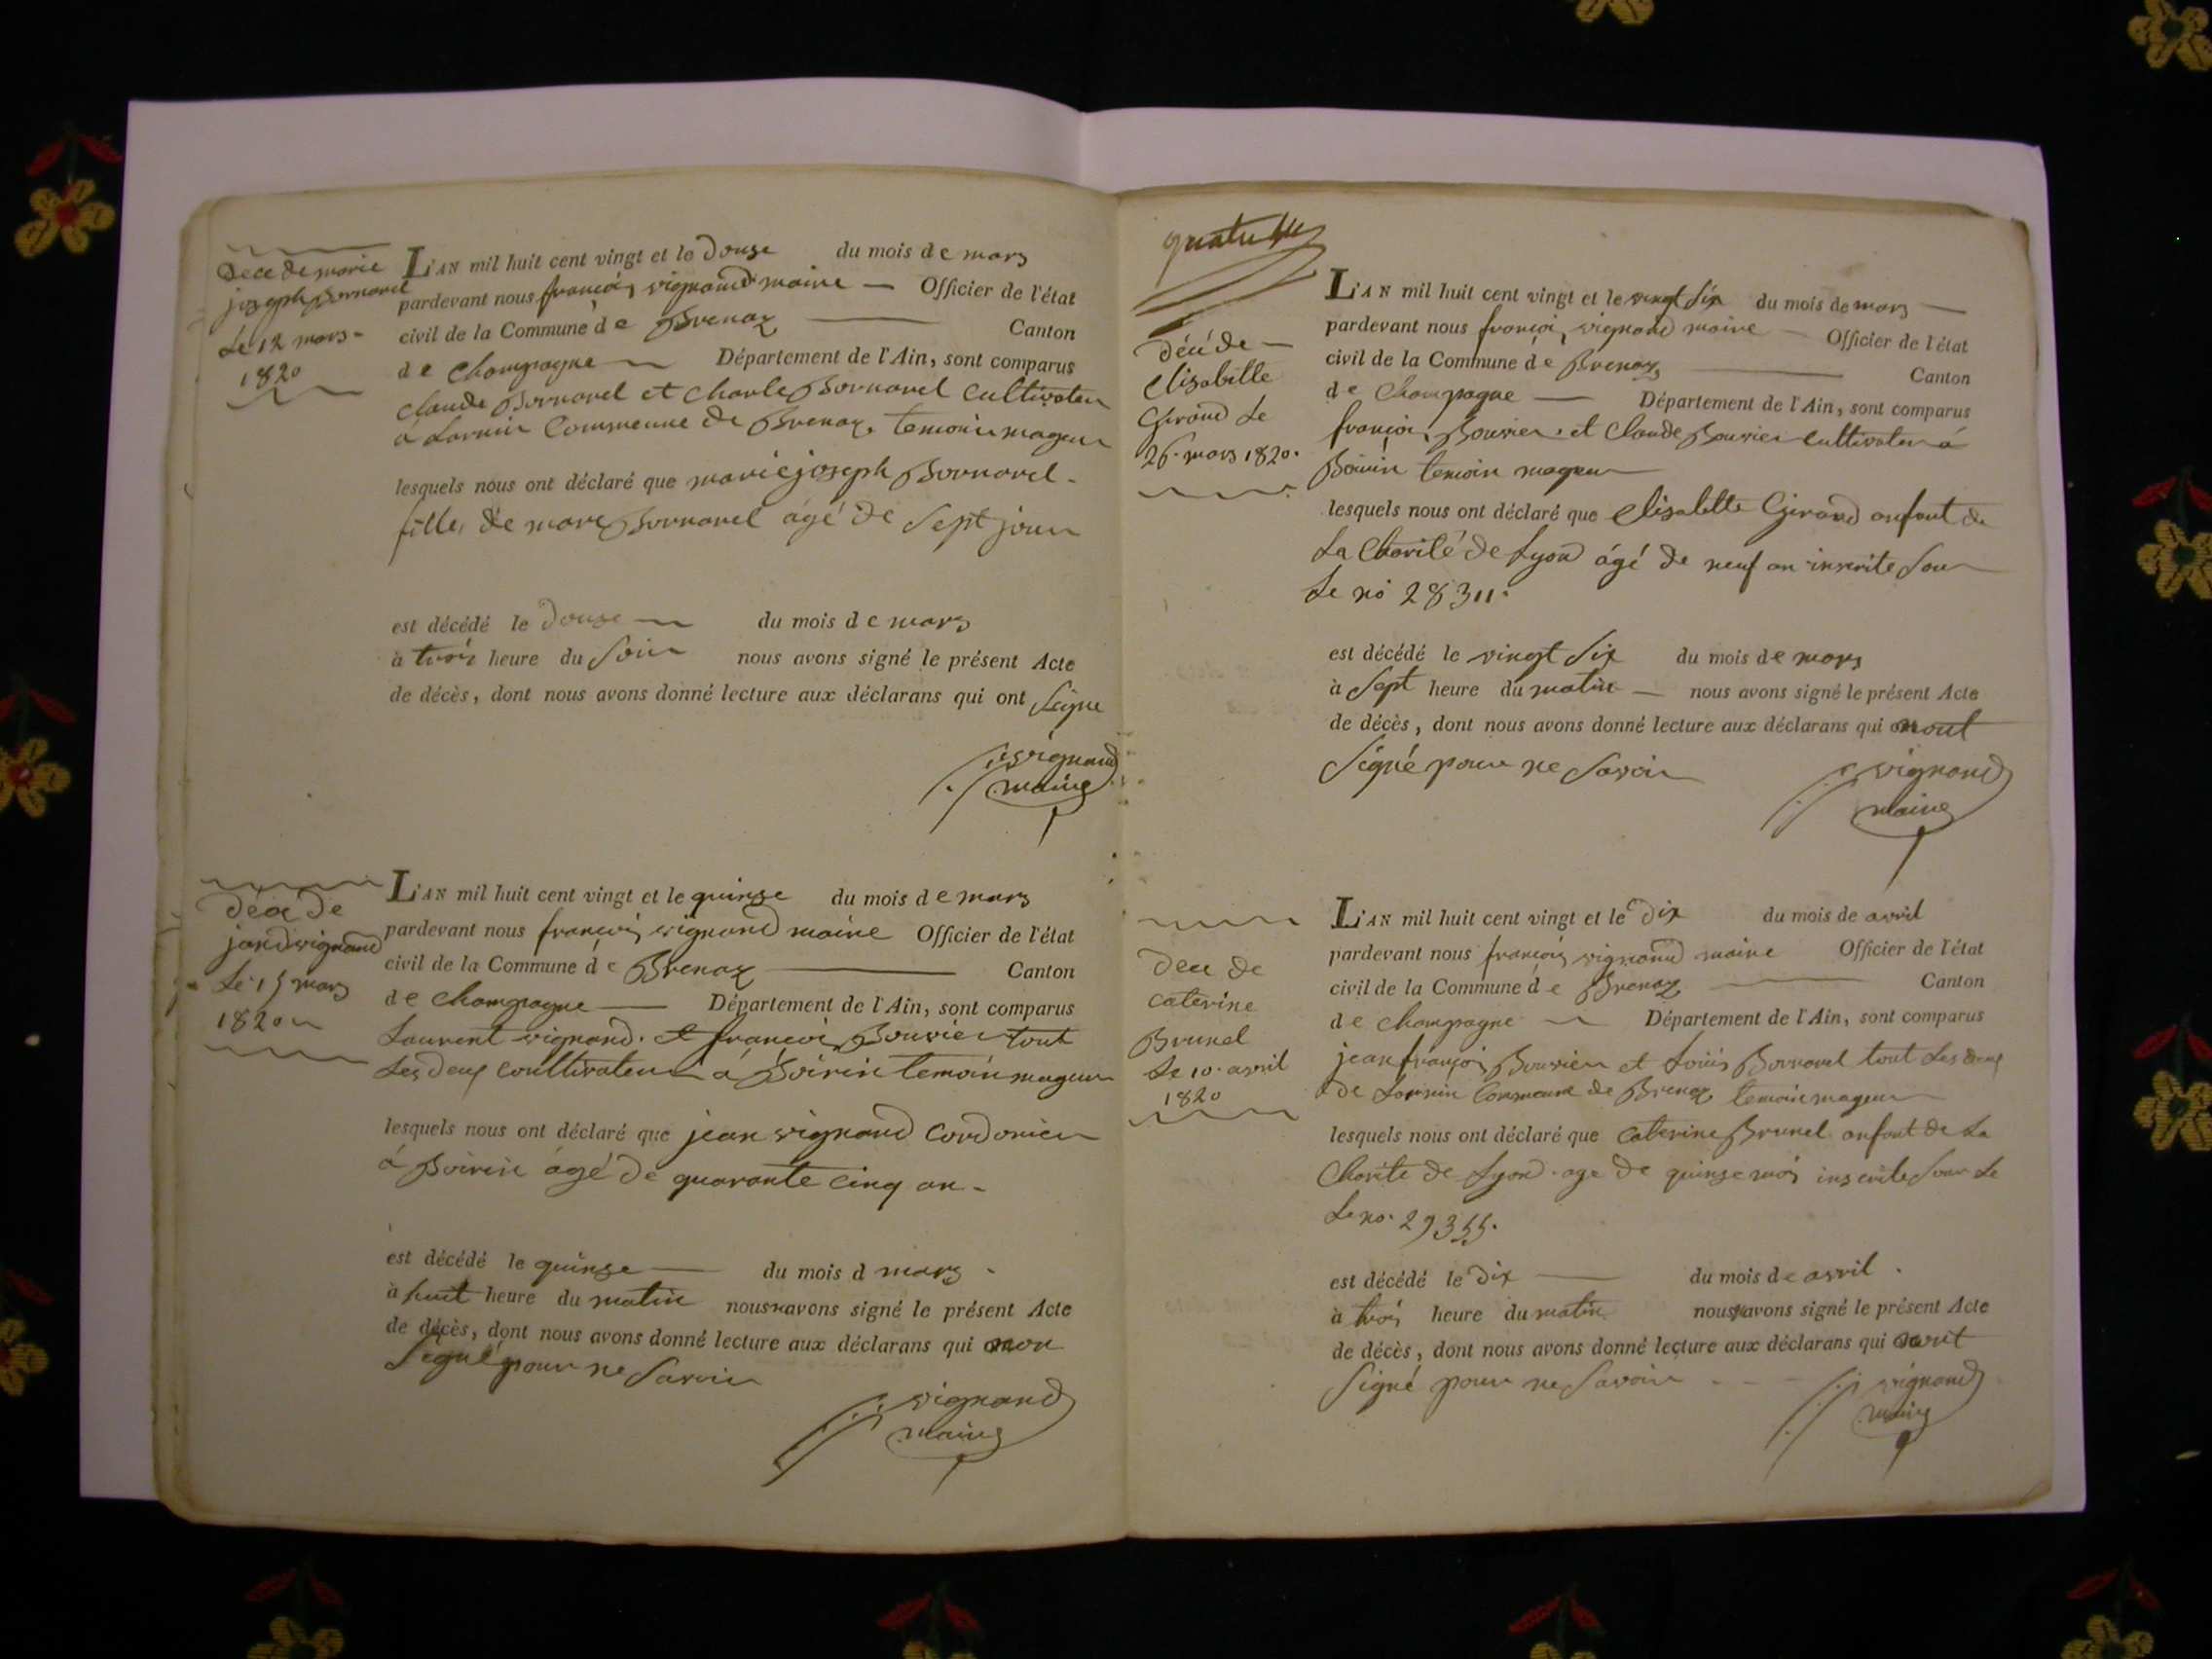 Dece de marie
joseph Bornarel
Le 12 mars
1820
L'AN mil huit cent vingt et le douze du mois de mars
pardevant nous françois vignand maire — Officier de l'état
civil de la Commune de Brenaz — Canton
de Champagne — Département de l'Ain, sont comparus
claude Bornarel et charle Bornarel cultivateur
à Lormin Commeune de Brenaz, temoin mageur
lesquels nous ont déclaré que marie joseph Bornarel
fille de marc Bornarel agé de Sept jour
est décédé le douze — du mois de mars
à trois heure du Soir nous avons signé le présent Acte
de décès, dont nous avons donné lecture aux déclarans qui ont Signe
vignand
maire
déce de
jean vignand
Le 15 mars
1820
L'AN mil huit cent vingt et le quinze du mois de mars
pardevant nous françois vignand maire Officier de l'état
civil de la Commune de Brenaz — Canton
de Champagne — Département de l'Ain, sont comparus
Laurent vignand. et françois Bouvier tout
Les deux coultivateur à Boirin temoin mageur
lesquels nous ont déclaré que jean vignand Cordonier
à Boirin agé de quarante cinq an -
est décédé le quinze — du mois d mars
à huit heure du matin nous navons signé le présent Acte
de décès, dont nous avons donné lecture aux déclarans qui non
Signé pour ne Savoir
vignand
maire
quatre
décé de —
Elisabette
Girand Le
26. mars 1820.
L'AN mil huit cent vingt et le vingt Six du mois de mars —
pardevant nous françois vignand maire — Officier de l'état
civil de la Commune de Brenaz — Canton
de Champagne — Département de l'Ain, sont comparus
françois Bouvier. et Claude Bouvier cultivateur à
Boirin temoin mageur
lesquels nous ont déclaré que Elisabette Girand anfant de
La Charité de Lyon agé de neuf an inscrite Sour
Le no 28311.
est décédé le vingt Six du mois de mars
à Sept heure du matin — nous avons signé le présent Acte
de décès, dont nous avons donné lecture aux déclarans qui nont
Signé pour ne Savoir
vignand
maire
dece de
caterine
Brunel
Le 10. avril
1820
L'AN mil huit cent vingt et le dix du mois de avril
pardevant nous françois vignand maire Officier de l'état
civil de la Commune de Brenaz — Canton
de Champagne — Département de l'Ain, sont comparus
jean françois Bouvier et Louis Bornarel tout Les deux
de Lormin Commeune de Brenaz temoin mageur
lesquels nous ont déclaré que Caterine Brunel anfant de La
Charite de Lyon. age de quinze mois inscrite Sour Le
Le no. 29355.
est décédé le dix — du mois de avril .
à trois heure du matin nous navons signé le présent Acte
de décès, dont nous avons donné lecture aux déclarans qui nont
Signé pour ne Savoir
vignand
maire